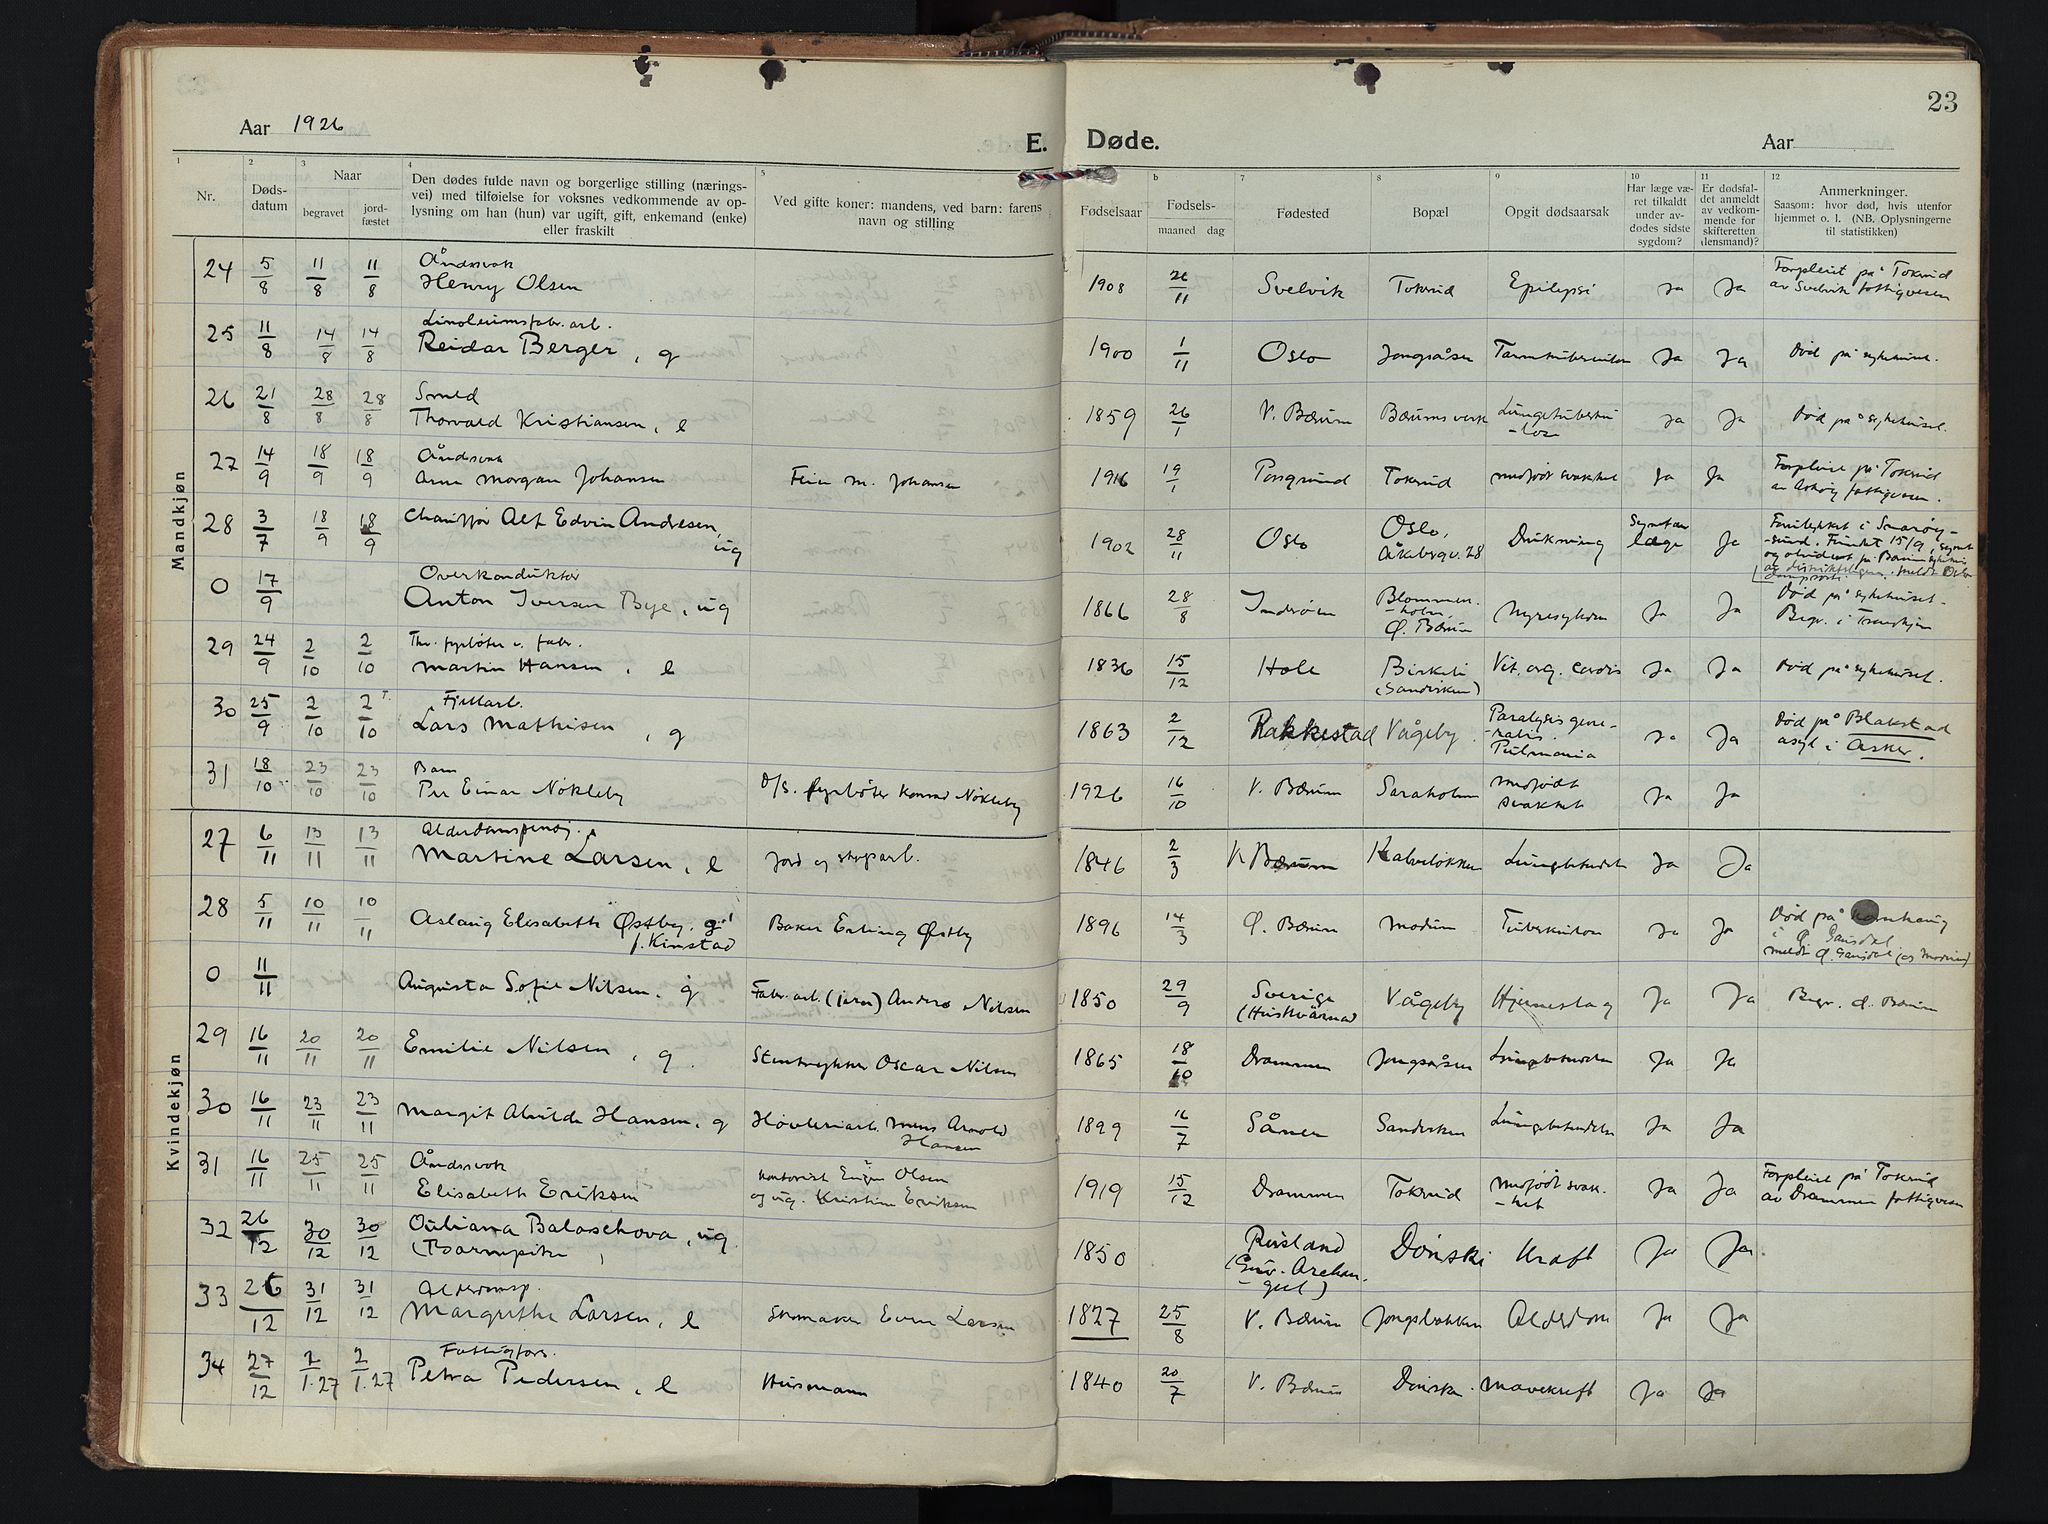 Aar 1926
E. Døde.
Aar
23
1 2 3 4 5 b 7 8 9 10 11 12
Nr.
Døds-
datum
Naar
begravet
jord-
fæstet
Den dødes fulde navn og borgerlige stilling (nærings-
vei) med tilføielse for voksnes vedkommende av op-
lysning om han (hun) var ugift, gift, enkemand (enke)
eller fraskilt
Ved gifte koner: mandens, ved barn: farens
navn og stilling
Fødselsaar
Fødsels-
maaned dag
Fødested
Bopæl
Opgit dødsaarsak
Har læge væ-
ret tilkaldt
under av-
dødes sidste
sygdom?
Er dødsfal-
det anmeldt
av vedkom-
mende for
skifteretten
(lensmand)?
Anmerkninger.
Saasom: hvor død, hvis utenfor
hjemmet o. l. (NB. Oplysningerne
til statistikken)
Mandkjøn
24 5/8 11/8 11/8 Åndssvak
Henry Olsen 1908 26/11 Svelvik Tokerud Epilepsi Ja Ja Forpleiet på Tokerud
av Svelvik fattigvesen
25 11/8 14/8 14/8 Linoleumsfabr. arb.
Reidar Berger, g 1900 1/11 Oslo Jongsåsen Tarmtuberkulose Ja Ja Død på sykehuset.
26 21/8 28/8 28/8 Smed
Thorvald Kristiansen, e 1859 26/1 V. Bærum Bærums verk Lungetuberku
-lose Ja Ja Død på sykehuset.
27 14/9 18/9 18/9 Åndssvak
Arne Morgan Johansen Feier M. Johansen 1916 19/1 Porsgrund Tokerud medfødt svakhet Ja Ja Forpleiet på Tokerud
av fattigvesen.
28 3/7 18/9 18/9 Chauffør Alf Edvin Andresen,
ug 1902 28/11 Oslo Oslo,
Åkebergv. 28 Drukning Synet av
læge Ja Forulykket i Snarøy-
sund. Fundet 15/9, synet
og på Bærum sykehus
av distriktslægen. meldt Oslo
0 17/9 Overkonduktør
Anton Iversen Bye, ug 1866 28/8 Inderøen Blommen-
holm,
Ø. Bærum Nyresykdom Ja Ja Død på sykehuset.
Begr. i Trondhjem
29 24/9 2/10 2/10 Fhv. fyrbøter v. fabr.
Martin Hansen, e 1836 15/12 Hole Birkeli
(Sandviken) Vit. org. cordis Ja Ja Død på sykehuset.
30 25/9 2/10 2/10 Fjellarb.
Lars Mathisen, g 1863 2/12 Rakkestad Vågeby Paralysis gene-
-ralis.
Pulmonia Ja Ja Død på Blakstad
asyl i Asker.
31 18/10 23/10 23/10 Barn
Per Einar Nøkleby D/S. Fyrbøter Konrad Nøkleby 1926 16/10 V. Bærum Saraholm medfødt
svakhet Ja Ja
Kvindekjøn
27 6/11 13/11 13/11 Alderdomspensj.
Martine Larsen, e Jord og skogarb. 1846 2/3 V. Bærum Kalveløkken Lungebetendelse Ja Ja
28 5/11 10/11 10/11 Aslaug Elisabeth Østby, g
f. Kimstad Baker Erling Østby 1896 14/3 Ø. Bærum Modum Tuberkulose Ja Ja Død på Kornhaug
i Ø. Gausdal
meldt Ø. Gausdal (og Modum)
0 11/11 Augusta Sofie Nilsen, g Fabr. arb. (jern) Anders Nilsen 1850 29/9 Sverige
(Huskvarna) Vågeby Hjerneslag Ja Ja Begr. Ø. Bærum
29 16/11 20/11 20/11 Emilie Nilsen, g. Stentrykker Oscar Nilsen 1865 18/10 Drammen Jongsåsen Lungebetendelse Ja Ja
30 16/11 23/11 23/11 Margit Alvilde Hansen, g Høvleriarb. Mens Arnold
Hansen 1899 16/7 Såner Sandviken Lungebetendelse Ja Ja
31 16/11 25/11 25/11 Åndssvak
Elisabeth Eriksen Kontorist Eugen Olsen
og ug. Kristine Eriksen 1919 15/12 Drammen Tokerud medfødt svak-
-het Ja Ja Forpleiet på Tokerud
av Drammen fattigvesen
32 26/12 30/12 30/12 Ouliana Balaschova, ug.
(Barnepike) 1850 Rusland
(Guv. Archan-
-gel) Dønski Kræft Ja Ja
33 26/12 31/12 31/12 Alderdomsp.
Margrethe Larsen, e Skomaker Even Larsen 1827 25/8 V. Bærum Jongsløkken Alderdom Ja Ja
34 27/12 2/1.27 2/1.27 Fattigfors.
Petra Pedersen, e Husmann 1840 20/7 V. Bærum Dønski Mavekreft Ja Ja